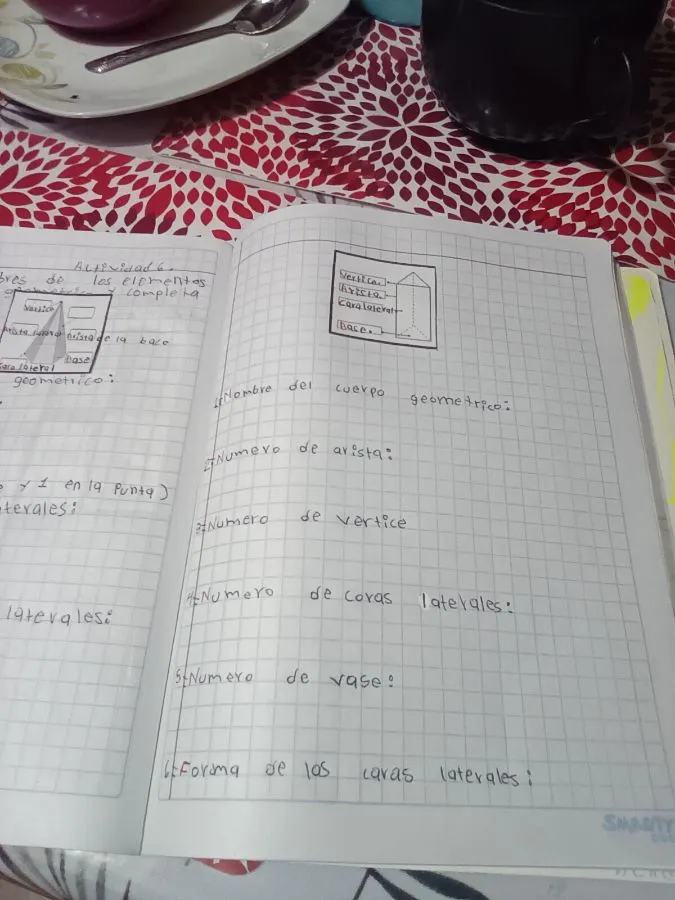 Actividad 6.
bres de los elementos
completa
Vertice
arista de la base
base
cara lateral
geometrico:
y 1 en la punta)
terales:
laterales:
Vertice.
Arista.
Cara lateral
base.
1-Nombre del cuerpo geometrico:
2-Numero de arista:
3-Numero de vertice
4-Numero de caras laterales:
5-Numero de vase:
6-Forma de las caras laterales:
SMARTY